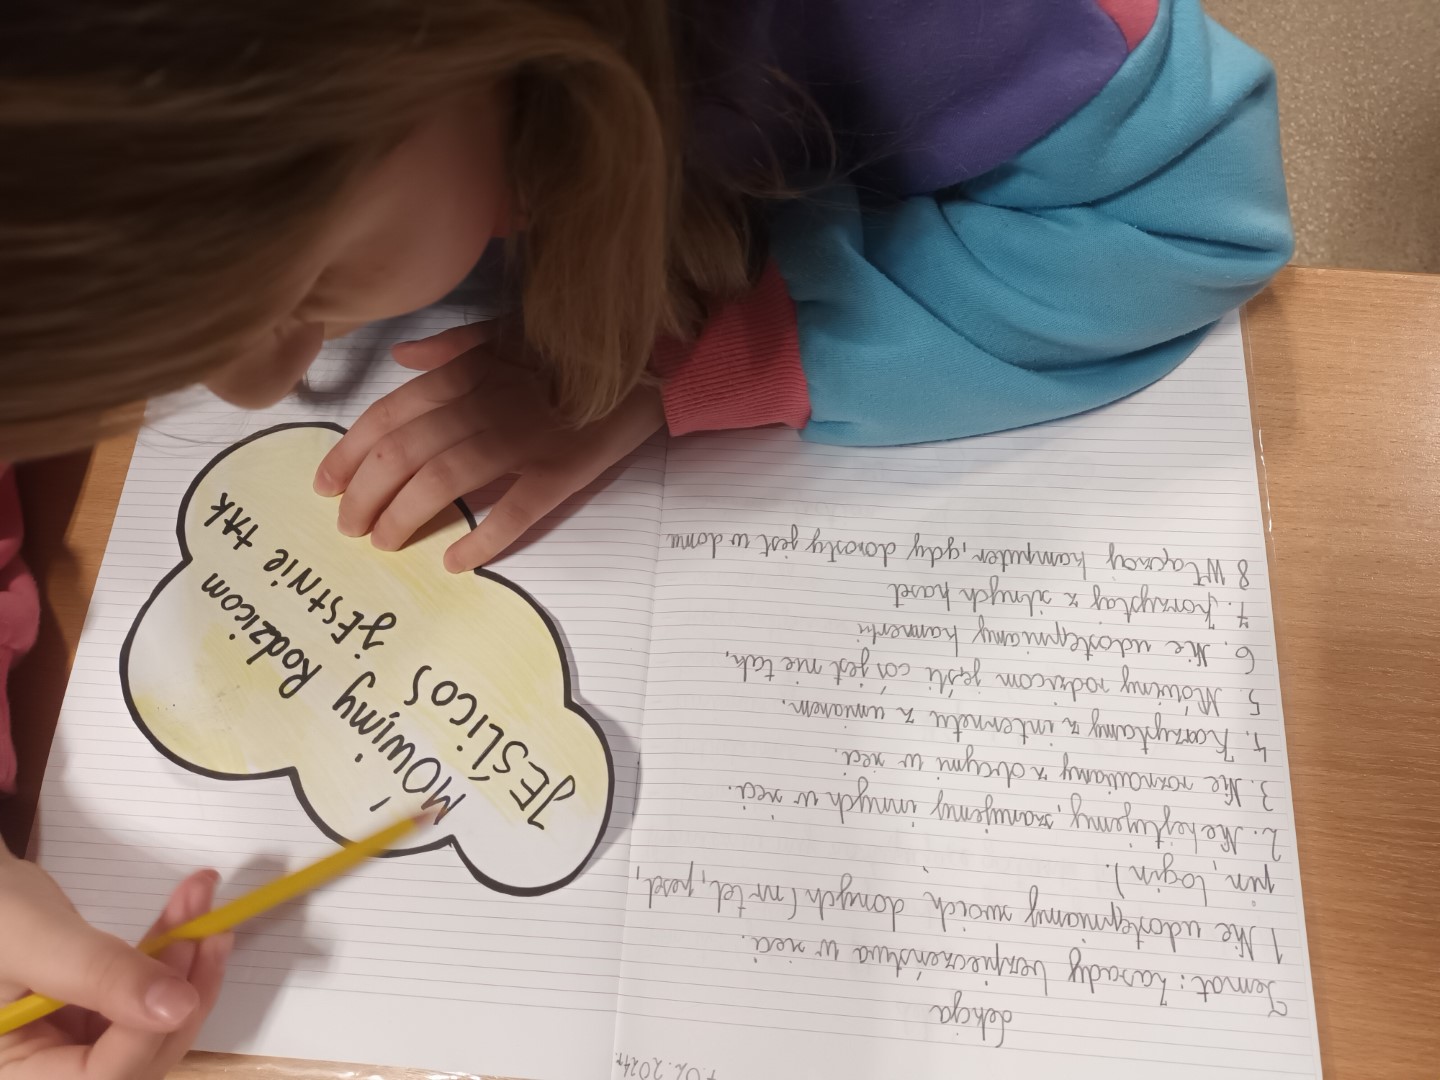 7.02.2024r.
Lekcja
Temat: Zasady bezpieczeństwa w sieci.
1 Nie udostępniamy swoich danych (nr tel, pesel,
pin, login).
2. Nie hejtujemy, szanujemy innych w sieci.
3. Nie rozmawiamy z obcymi w sieci.
4. Korzystamy z internetu z umiarem.
5 Mówimy rodzicom jeśli coś jest nie tak.
6. Nie udostępniamy kamerki
7. Korzystaj z silnych haseł
8 Włączaj komputer, gdy dorosły jest w domu
MÓWiMy Rodzicom
JEŚLICOŚ jESTNiE tAk